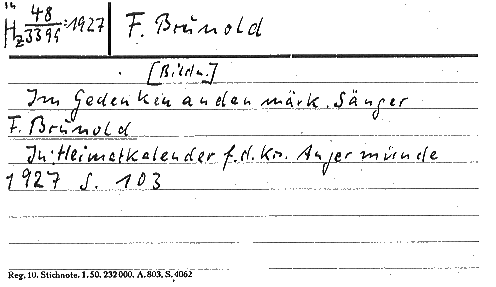 in
Hz 48/3399:1927 F. Brunold
[Bildn.]
Im Gedenken an den märk. Sänger
F. Brunold
In: Heimatkalender f. d. Kr. Angermünde
1927 S. 103
Reg. 10. Stichnote. 1. 50. 232000. A. 803. S. 4062